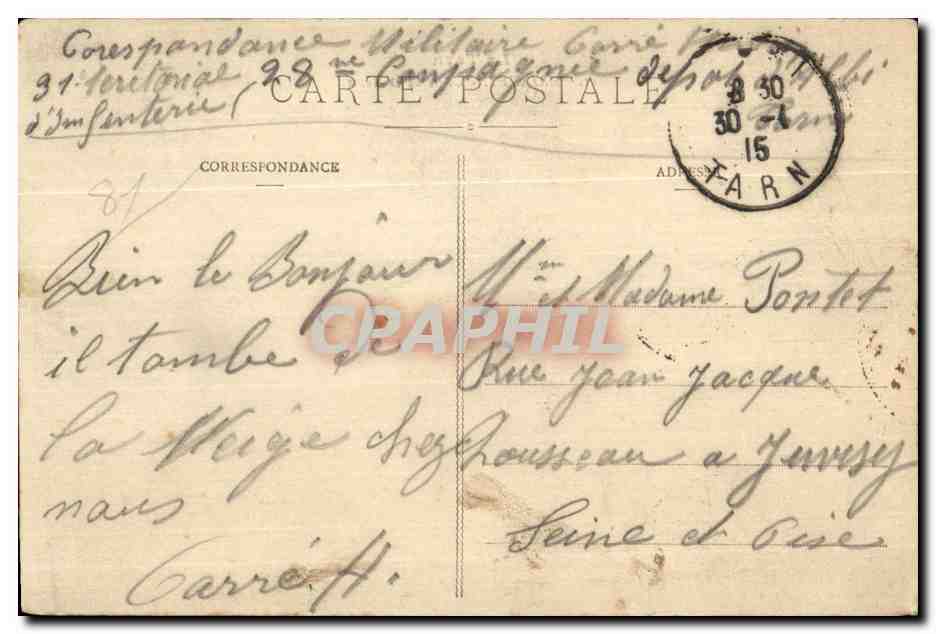 Corespandance Militaire Carré
31 teritorial 28me Compagnie depot d'Albi
d'Imfenterie Tarn
CARTE POSTALE
8 30
30 -1
15
TARN
CORRESPONDANCE
ADRESSE
81
Bien le Bonjour
il tombe de
la Neige chez
nous
Carré H.
Mr et Madame Pontet
Rue Jean Jacque
Rousseau a Juvisy
Seine et Oise
CPAPHIL